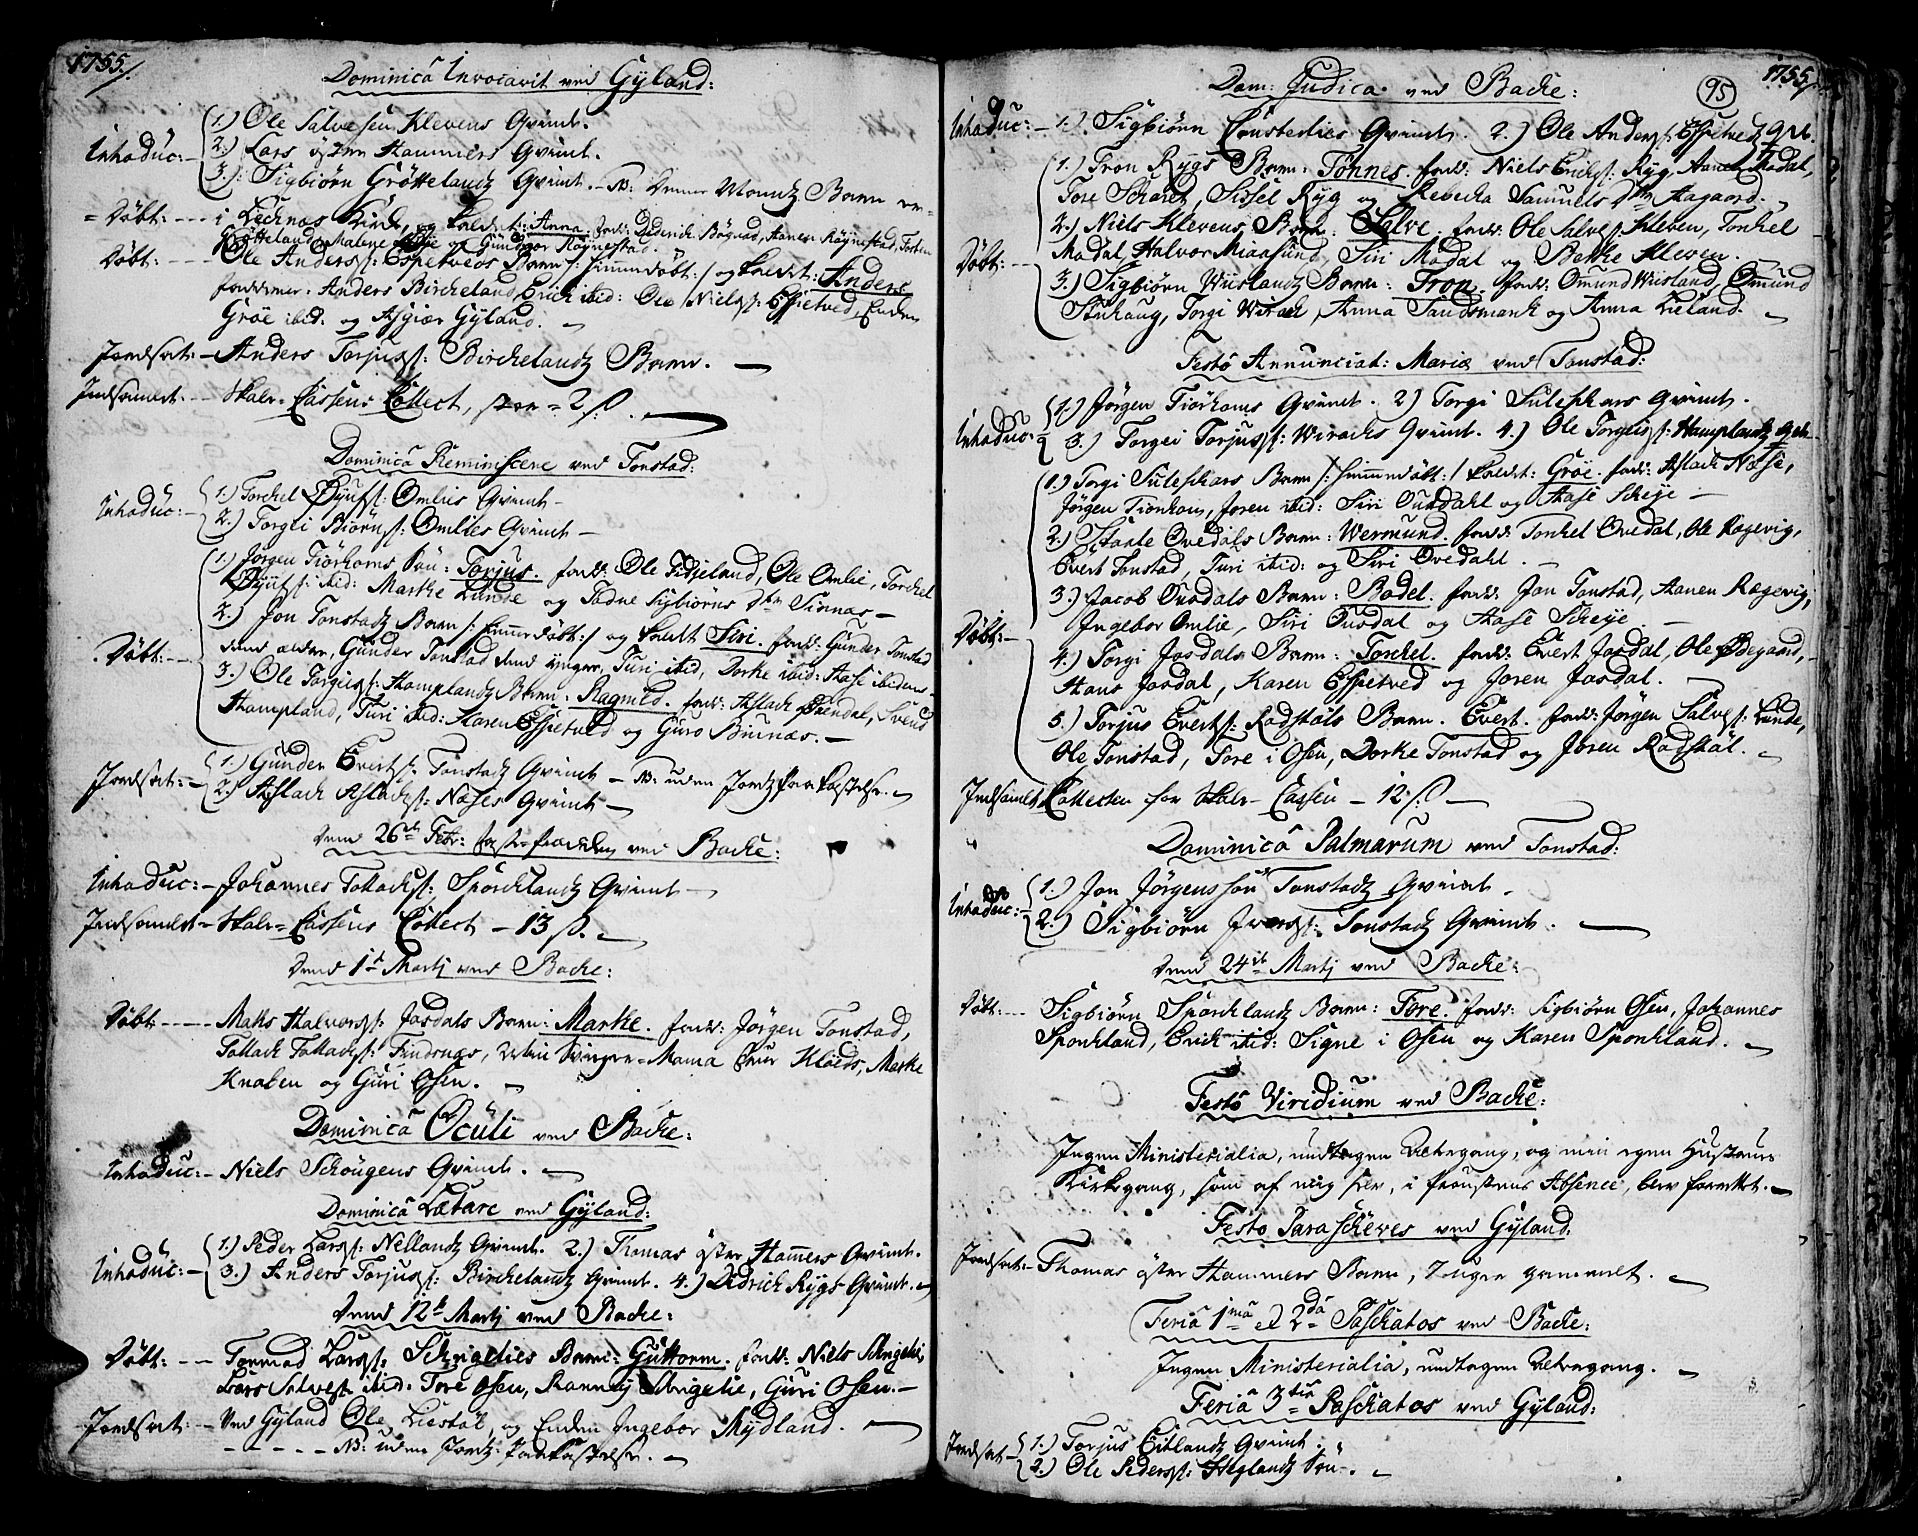 1755.
Dominicâ Invocavit ved Gyland:
Introduc: 1.) Ole Salvesen Klevens Qvinde.
2.) Lars östre Hammers Qvinde.
3.) Sigbiörn Gröttelandz Qvinde. NB: Denne Mands Barn er
Döbt: i Kirke og kaldet: Anna. fadd: Diderich Bögvad, Hanen Röynestad, Torsten
Grötteland, Malene ibid: og Gundvor Röynestad.
Döbt: Ole Anders: Espetveds Barn /: hiemmedöbt :/ og kaldet: Anders
faddere: Anders Bircheland, Erich ibid: Ole Niels: Espetved, Enden
Gröe ibid. og Asgier Gyland.
Jordsat: Anders Torjus: Birchelandz Barn.
Indsamlet: Skole-Cassens Collect, 2 ß.
Dominicâ Reminiscere ved Tonstad:
Introduc: 1.) Torchel Öyus: Omlies Qvinde
2.) Torgei Biörns: Omlies Qvinde
1.) Jörgen Tiörhoms Sön: Torjus. fadd: Ole Fidjeland, Ole Omlie, Torchel
ibid: Marthe Lunde og Tadne Sigbiörns Dtr Sinnas
Döbt: 2.) Jon Tonstadz Barn /: hiemmedöbt :/ og kaldt Siri. fadd: Gunder Tonstad
dend ældre, Gunder Tonstad dend yngere, Turi ibid, Dorthe ibid: Aase ibidem
3.) Ole Torgeis: Hamplandz Barn: Ragnild. fadd: Aslach Öxendal, Svend
Hampland, Turi ibid: Karen Espetved og Guro Biunæs.
Jordsat: 1.) Gunder Everts: Tonstadz Qvinde NB: uden Jordz paakastelse.
2.) Aslach Aslags: Næses Qvinde
dend 26de Febr: faste-prædiken ved Backe:
Introduc: Johannes Tollachs: Sporchlandz Qvinde
Indsamlet Skole-Cassens Collect 13 ß.
dend 1te Martj ved Backe:
Döbt: Mathis Halvors: Josdals Barn: Marthe. fadd: Jörgen Tonstad,
Tollach Tollachs: Findsnæs, Mama Kloeds, Marthe
Knaben og Guri Osen.
Dominicâ Oculi ved Backe:
Introduc: Niels Schougens Qvinde.
Dominicâ Lætare ved Gyland:
Introduc: 1.) Peder Lars: Nellandz Qvinde. 2.) Thomas östre Hammers Qvinde.
3.) Anders Torjus: Birchelandz Qvinde. 4.) Didrich Rygs Qvinde.
dend 12te Martj ved Backe:
Döbt: Tormod Lars: Schregelies Barn: Guttorm. fadd: Niels Schregelie,
Lars Salves: ibid: Tore Osen, Ranney Schregelie, Guri Osen.
Jordsat: ved Gyland Ole Liestöl, og Enken Ingebor Mydland.
NB: uden Jordz paakastelse.
95
1755.
Dom: Judica ved Backe:
Introduc: 1.) Sigbiörn Qvinde. 2.) Ole Anders: Espetved Qvi.
1.) Tron Rygs Barn: Tönnes. fadd: Niels Erichs: Ryg, Hanen Modal,
Tore Scharet, Sissel Ryg og Rebecha Samuels Dtr Aagaard.
Döbt: 2.) Niels Klevens Barn: Salve. fadd: Ole Salves: Kleven, Torchel
Modal, Halvor Miaasund, Siri Modal og Berthe Kleven.
3.) Sigbiörn Wiislandz Barn: Tron. fadd: Omund Wiisland, Omund
Stuhaug, Torgi Wirach, Anna Sandsmark og Anna Lieland.
Festô Annunciat: Mariæ ved Tonstad:
Introduc: 1.) Jörgen Tiörhoms Qvinde. 2) Torgi Sulesckars Qvinde.
3.) Torgei Torjus: Wirachs Qvinde. 4.) Ole Torgeis: Hamplandz Qvi.
1.) Torgi Sulesckars Barn /: hiemmedöbt :/ kaldet: Gröe. fadd: Aslach Næse,
Jörgen Tiörhom, Joren ibid: Siri Ousdahl og Aase Scheye
2.) Ovedals Barn: Wermund. fadd: Torchel Ovedal, Ole Rægevig,
Evert Tonstad, Turi ibid: og Siri Ovedahl.
3.) Jacob Ousdals Barn: Bodel. fadd: Jon Tonstad, Hanen Rægevig,
Ingebor Omlie, Siri Ousdal og Aase Scheye.
Döbt: 4.) Torgi Josdals Barn: Torchel. fadd: Evert Josdal, Ole Ödegaard,
Hans Josdal, Karen Espetved og Joren Josdal.
5.) Torjus Everts: Rodstöls Barn. Evert. fadd: Jörgen Salves: Lunde,
Ole Tonstad, Tore i Osen, Dorthe Tonstad og Joren Rodstöl.
Indsamlet Collecten for Skole-Cassen 12 ß
Dominicâ Palmarum ved Tonstad:
Introduc: 1.) Jon Jörgensöns Tonstadz Qvinde.
2.) Sigbiörn Ivers: Tonstadz Qvinde.
dend 24de Martj ved Backe:
Döbt: Sigbiörn Sporchlandz Barn: Tore. fadd: Sigbiörn Osen, Johannes
Sporchland, Erich ibid: Signe i Osen og Karen Sporchland.
Festô Viridium ved Backe:
Ingen Ministerialia, undtagen Bededgang, og min egen Hustrues
Kirkegang, som af mig selv, i Proustens Absence, blev forrettet.
Festo Parascheves ved Gyland.
Jordsat: Thomas östre Hammers Barn, 7 uger gammelt.
Feriâ 1mâ et 2dâ Paschatos ved Backe:
Ingen Ministerialia, undtagen Bededgang.
Feriâ 3tiâ Paschatos ved Gyland:
Jordsat 1.) Torjus Eitlandz Qvinde.
2.) Ole Peders: Heglandz Sön.